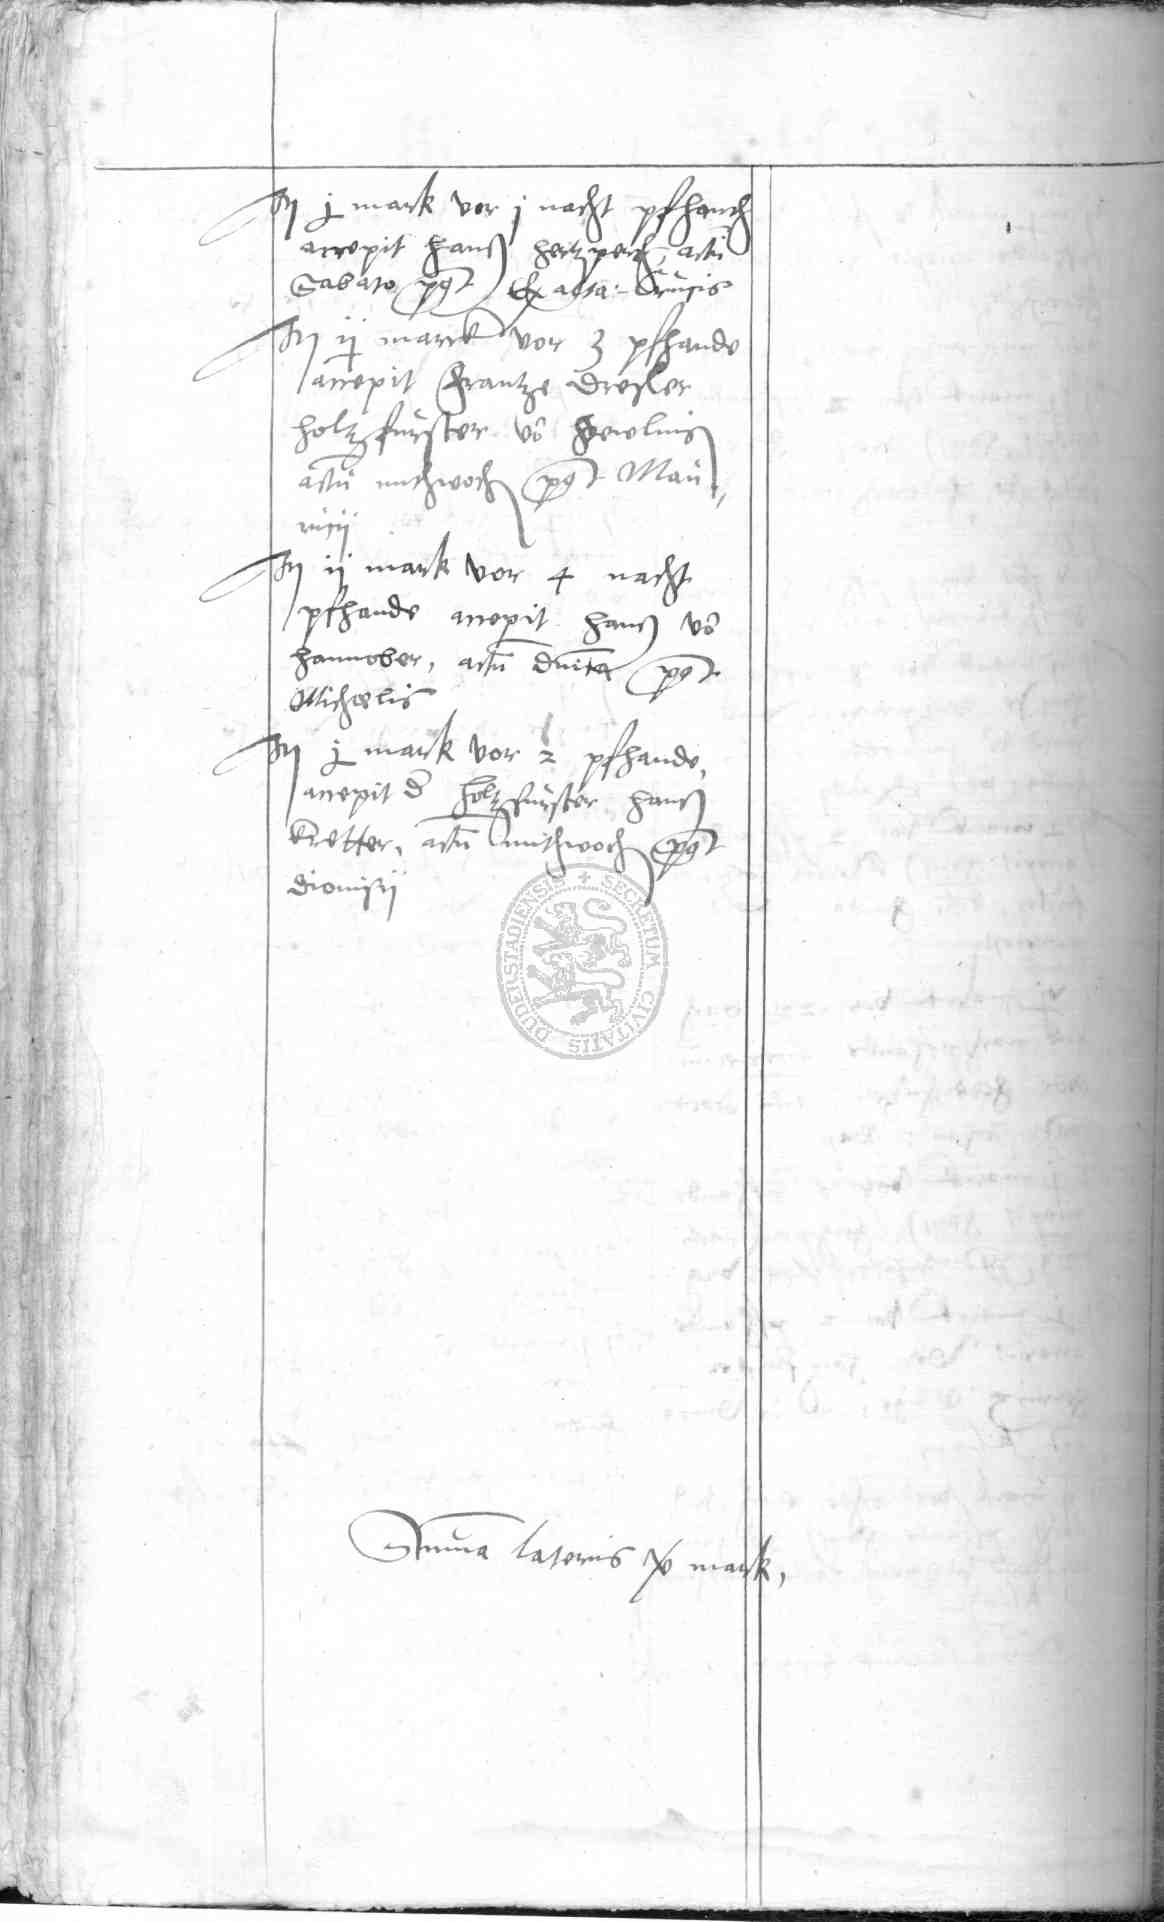 It j mark vor j nacht pfhandt
accepit hanß hertzperch, actũ
Sabato post Exalta: Crucis
It ij marck vor 3 pfhande
accepit Frantze Dresler
holtzfurster vō
actũ mithwoch post Mau
ricij
It ij mark vor 4 nacht
pfhande accepit hanß vō
hannober, actũ dnica post
Michaelis
It j mark vor 2 pfhande,
accepit d holtzfurster hanß
Kretter, actũ mithwoch post
dionisij
DUDERSTADIENSIS + SECRETUM CIVITATIS
Suma lateris xv mark,